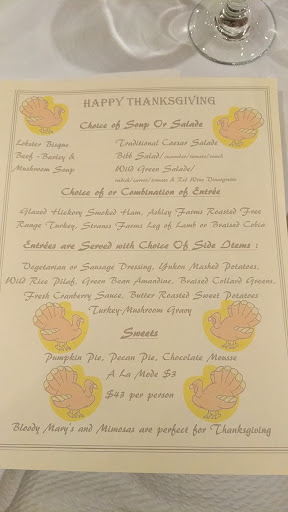 HAPPY THANKSGIVING
Choice of Soup Or Salade
Lobster Bisque Traditional Caesar Salade
Beef - Barley & Bibb Salad/ cucumber/tomato/ranch
Mushroom Soup Wild Green Salade/
radish/carrot/tomato & Red Wine Vinaigrette
Choice of or Combination of Entrée
Glazed Hickory Smoked Ham, Ashley Farms Roasted Free
Range Turkey, Strauss Farms Leg of Lamb or Braised Cobia
Entrées are Served with Choice Of Side Items :
Vegetarian or Sausage Dressing, Yukon Mashed Potatoes,
Wild Rice Pilaf, Green Bean Amandine, Braised Collard Greens,
Fresh Cranberry Sauce, Butter Roasted Sweet Potatoes
Turkey-Mushroom Gravy
Sweets
Pumpkin Pie, Pecan Pie, Chocolate Mousse
A La Mode $3
$43 per person
Bloody Mary's and Mimosas are perfect for Thanksgiving